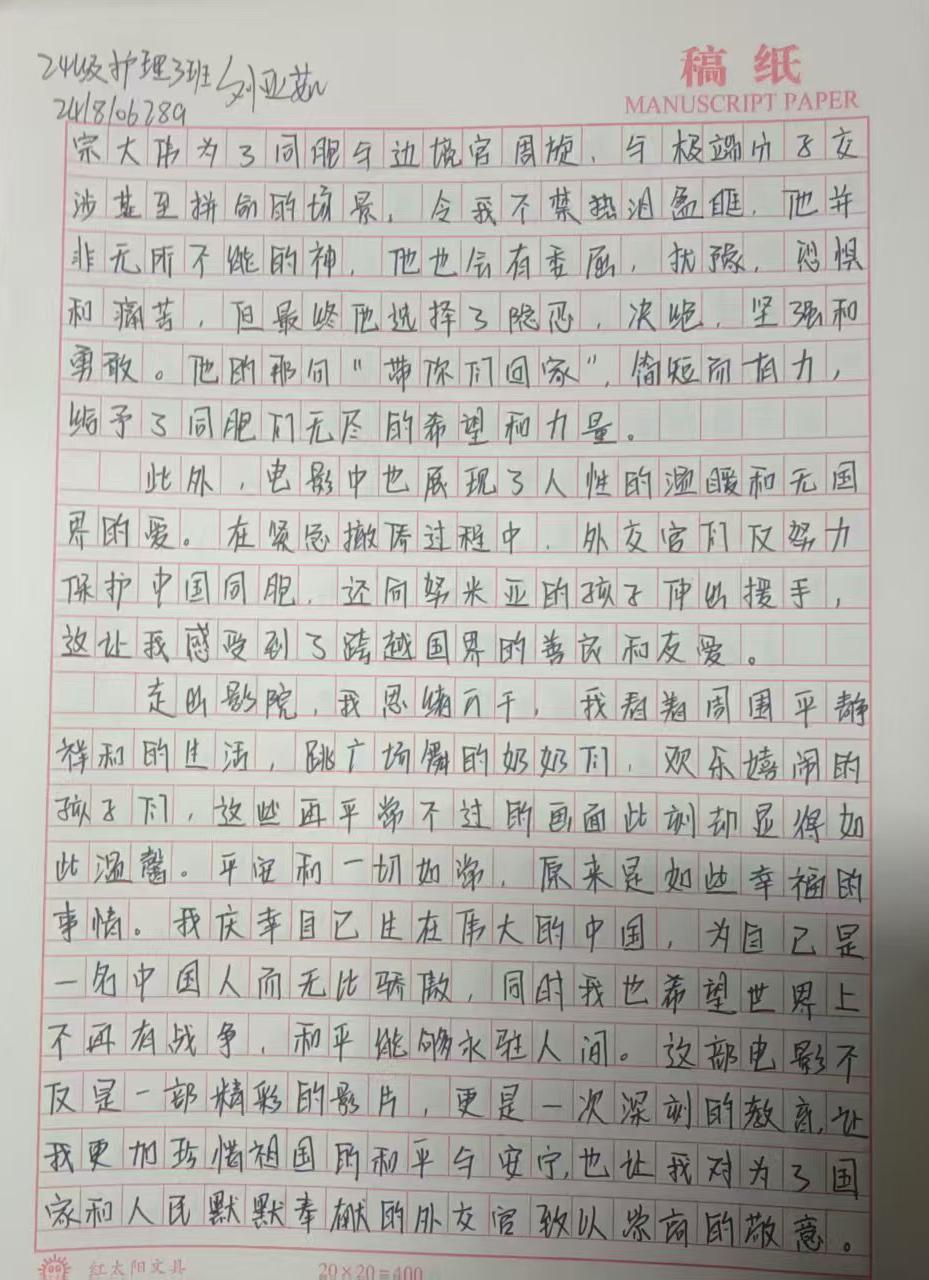 24级护理3班 刘亚茹
2418106289
稿纸
MANUSCRIPT PAPER
宗大伟为了同胞与边境官周旋，与极端分子交
涉甚至拼命的场景，令我不禁热泪盈眶，他并
非无所不能的神，他也会有委屈，犹豫，恐惧
和痛苦，但最终他选择了隐忍，决绝，坚强和
勇敢。他的那句“带你们回家”，简短而有力，
给予了同胞们无尽的希望和力量。
此外，电影中也展现了人性的温暖和无国
界的爱。在紧急撤侨过程中，外交官们仅努力
保护中国同胞，还向努米亚的孩子伸出援手，
这让我感受到了跨越国界的善良和友爱。
走出影院，我思绪万千，我看着周围平静
祥和的生活，跳广场舞的奶奶们，欢乐嬉闹的
孩子们，这些再平常不过的画面此刻却显得如
此温馨。平安和一切如常，原来是如此幸福的
事情。我庆幸自己生在伟大的中国，为自己是
一名中国人而无比骄傲，同时我也希望世界上
不再有战争，和平能够永驻人间。这部电影不
仅是一部精彩的影片，更是一次深刻的教育，让
我更加珍惜祖国的和平与安宁，也让我对为了国
家和人民默默奉献的外交官致以崇高的敬意。
红太阳文具
20×20=400